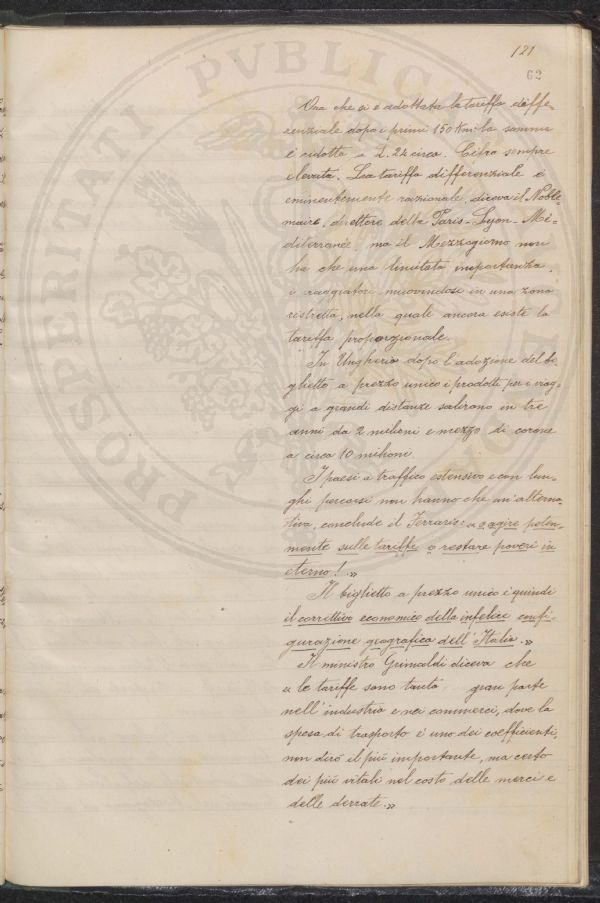 121
62
Ora che si è adottata la tariffa diffe-
renziale dopo i primi 150 Km: la somma
è ridotta a L. 24 circa. Cifra sempre
elevata. La tariffa differenziale è
eminentemente razionale, diceva il Noble-
maire, direttore della Paris-Lyon-Mé-
diterranée, ma il Mezzogiorno non
ha che una limitata importanza,
i viaggiatori muovendosi in una zona
ristretta, nella quale ancora esiste la
tariffa proporzionale.
In Ungheria dopo l'adozione del bi-
glietto a prezzo unico i prodotti per i viag-
gi a grandi distanze salirono in tre
anni da 2 milioni e mezzo di corone
a circa 10 milioni.
I paesi a traffico estensivo e con lun-
ghi percorsi non hanno che un'alterna-
tiva, conclude il Ferraris: «o agire poten-
mente sulle tariffe o restare poveri in
eterno!»
Il biglietto a prezzo unico è quindi
il correttivo economico della infelice confi-
gurazione geografica dell'Italia.»
Il ministro Grimaldi diceva che
« le tariffe sono tanta gran parte
nell'industria e nei commerci, dove la
spesa di trasporto è uno dei coefficienti,
non dirò il più importante, ma certo
dei più vitali nel costo delle merci e
delle derrate.»
PROSPERITATI PVBLICAE